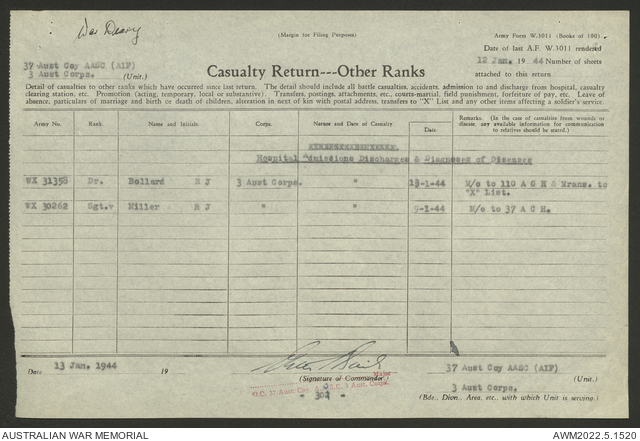 War Diary
(Margin for Filing Purposes)
Army Form W.3011 (Books of 100)
Date of last A.F. W.3011 rendered
12 Jan. 19 44 Number of sheets
attached to this return
37 Aust Coy AASC (AIF)
3 Aust Corps. (Unit.)
Casualty Return---Other Ranks
Detail of casualties to other ranks which have occurred since last return. The detail should include all battle casualties, accidents, admission to and discharge from hospital, casualty
clearing station, etc. Promotion (acting, temporary, local or substantive). Transfers, postings, attachments, etc., courts-martial, field punishment, forfeiture of pay, etc. Leave of
absence, particulars of marriage and birth or death of children, alteration in next of kin with postal address, transfers to "X" List and any other items affecting a soldier's service.
Army No. Rank. Name and Initials. Corps. Nature and Date of Casualty Date Remarks. (In the case of casualties from wounds or disease, any available information for communication to relatives should be stated.)
Hospital Admissions Discharges & Diagnoses of Diseases
WX 31358 Dr. Bollard R J 3 Aust Corps. " 13-1-44 M/o to 110 A G H & Trans. to
"X" List.
WX 30262 Sgt. Miller R J " " 9-1-44 M/o to 37 A C H.
Date 13 Jan. 1944 19
(Signature of Commander)
Major
O.C. 37 Aust Coy A.A.S.C. 3 Aust Corps
37 Aust Coy AASC (AIF)
(Unit.)
3 Aust Corps.
(Bde., Divn., Area, etc., with which Unit is serving.)
AUSTRALIAN WAR MEMORIAL
AWM2022.5.1520